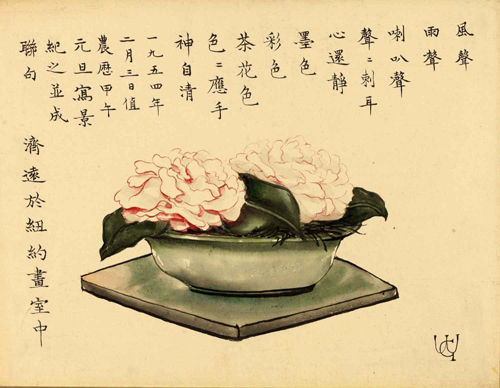 風聲
雨聲
喇叭聲
聲〻刺耳
心還靜
墨色
彩色
茶花色
色〻應手
神自清
一九五四年
二月三日值
農曆甲午
元旦寫景
紀之並成
聯句
濟遠於紐約畫室中